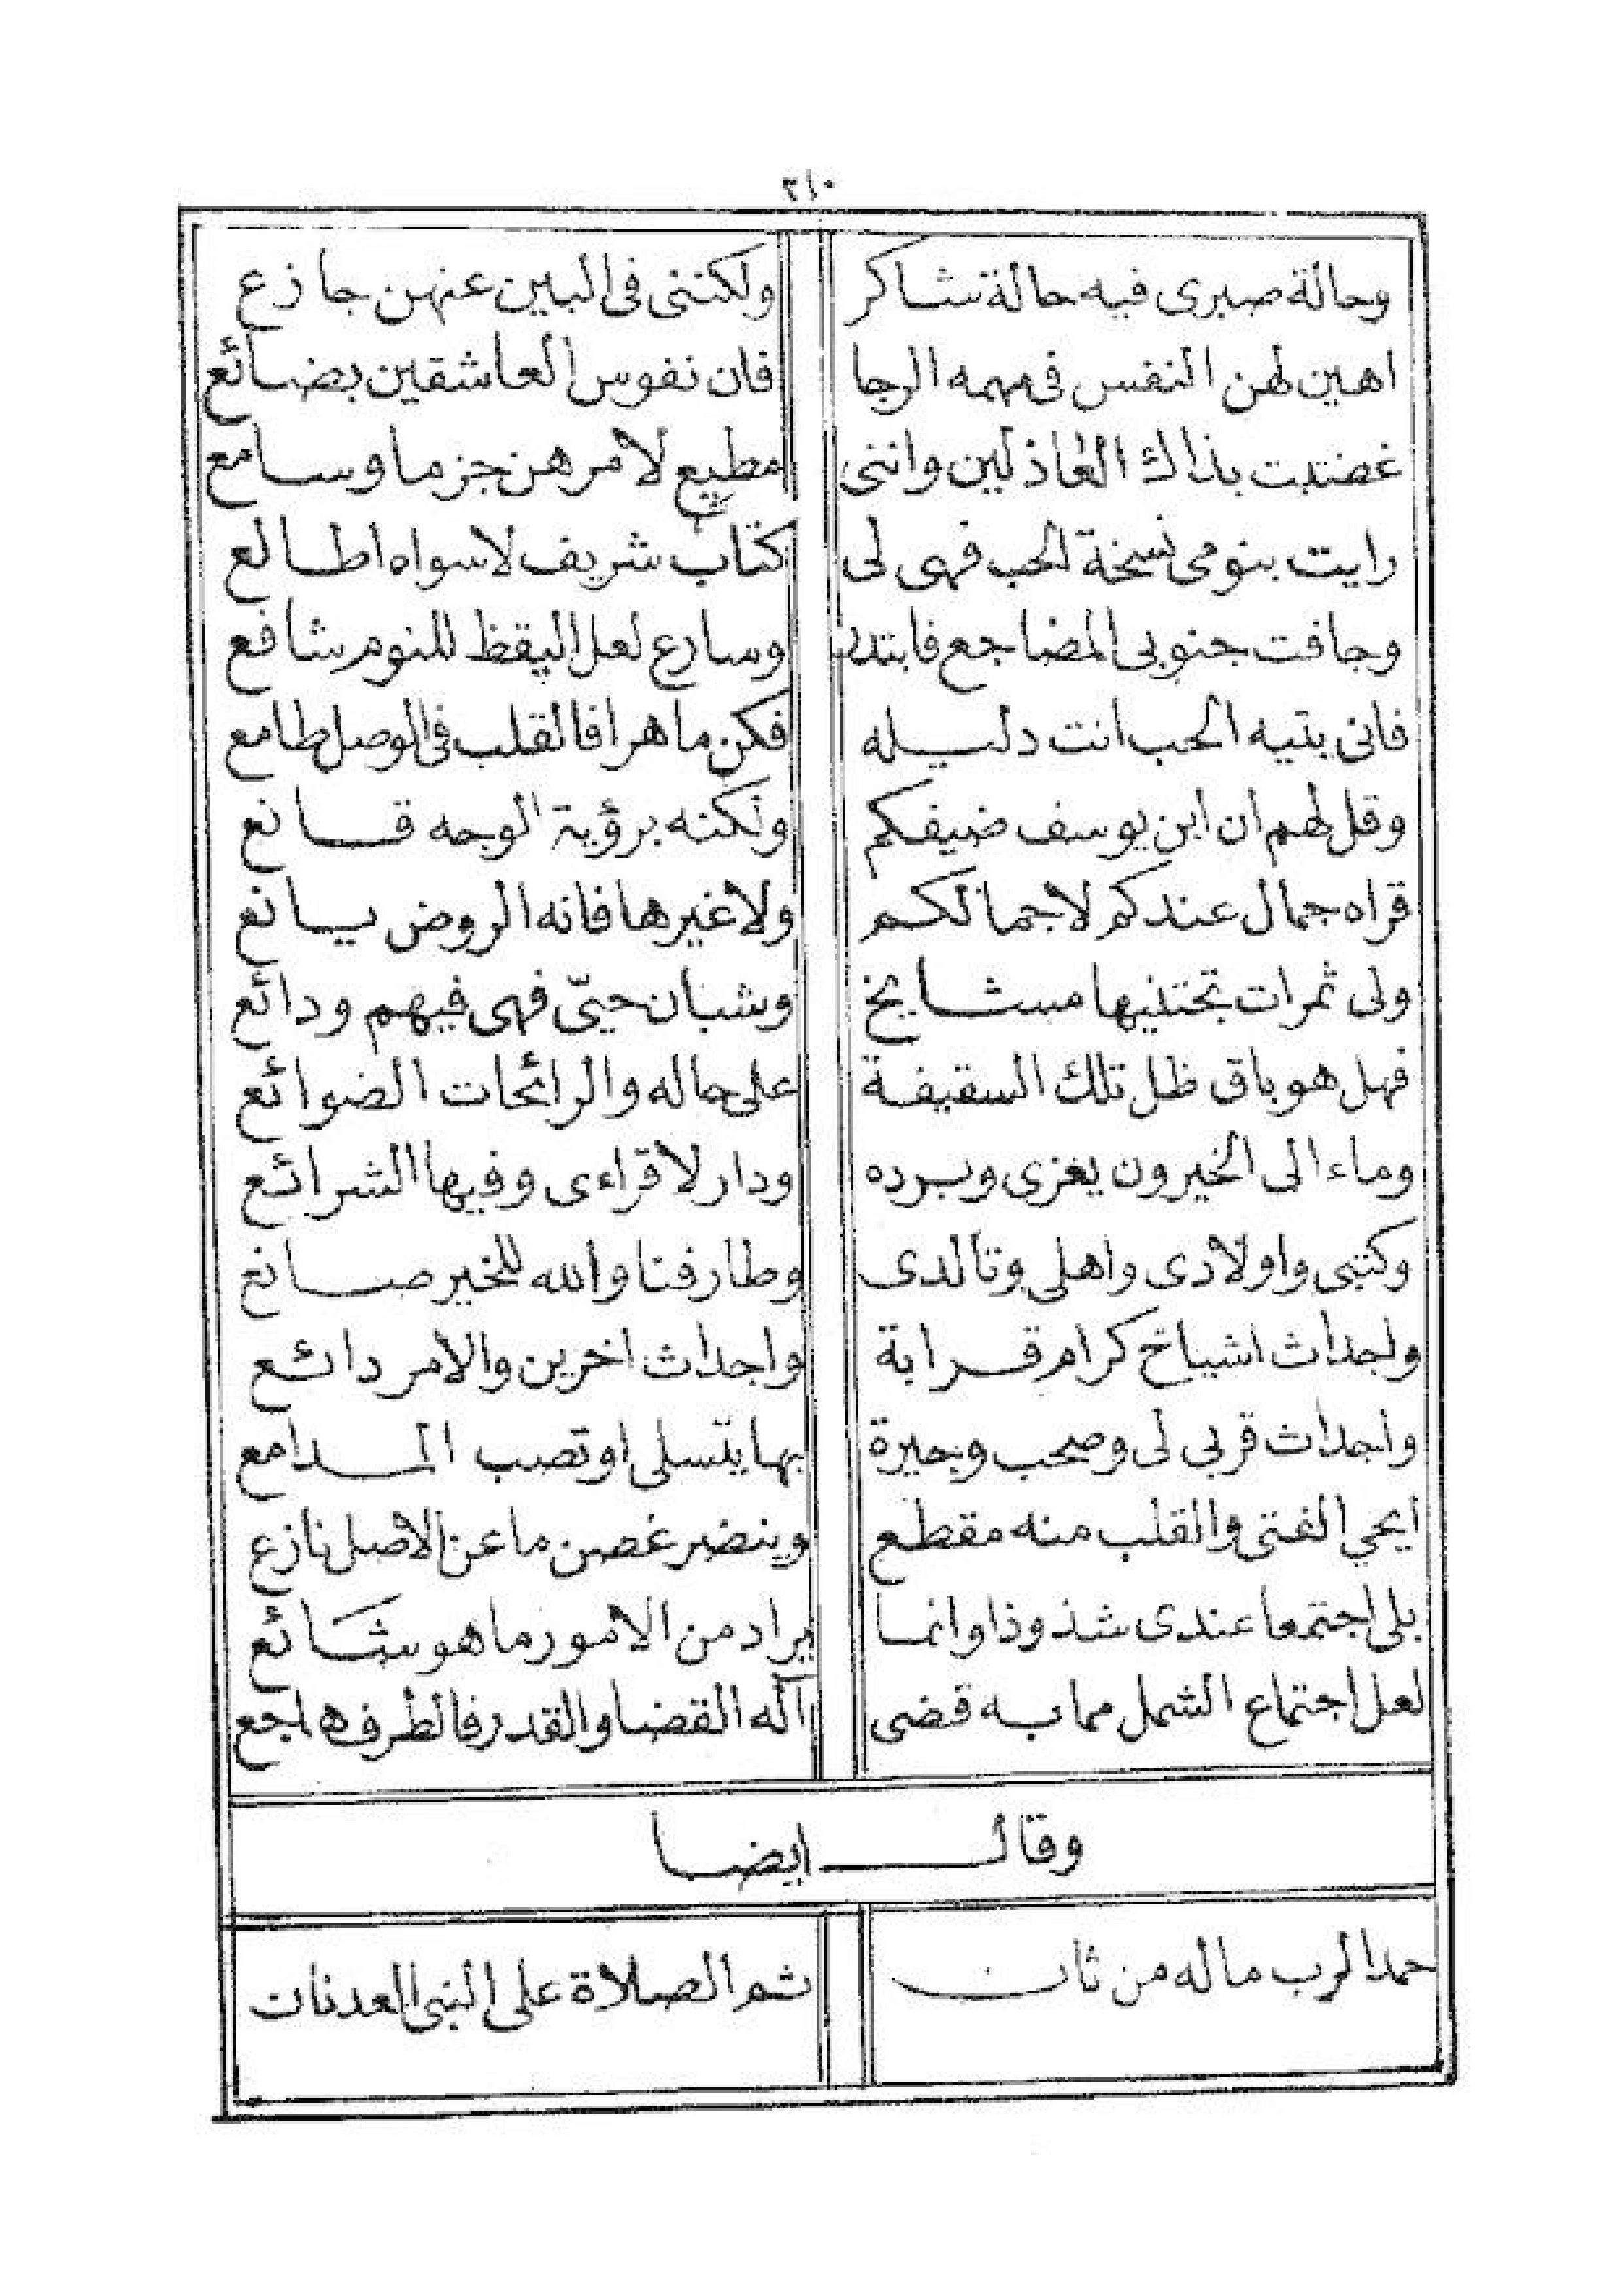 ٣١٠
وحالة صبرى فيه حالة شاكر ولكننى فى البين عنهن جازع
اهين لهن النفس فى مهمه الرجا فان نفوس العاشقين بضائع
غضبت بذاك العاذلين واننى مطيع لامرهن جزما وسامع
رايت بنومى نسخة الحب فهى لى كتاب شريف لاسواه اطالع
وجافت جنوبى المضاجع فابتدر وسارع لعل اليقظ للنوم شافع
فانى بتيه الحب انت دليله فكن ماهرا فالقلب فى الوصل طامع
وقل لهم ان ابن يوسف ضيفكم ولكنه برؤية الوجه قانع
قراه جمال عندكم لاجمالكم ولاغيرها فانه الروض يانع
ولى ثمرات تجتنيها مشايخ وشبان حيّى فهى فيهم ودائع
فهل هو باق ظل تلك السقيفة على حاله والرائحات الضوائع
وماء الى الخيرون يغزى وبرده ودار لاقراءى وفيها الشرائع
وكتبى واولادى واهلى وتالدى وطارفنا والله للخير صانع
واجداث اشياخ كرام قرابة واجداث اخرين والامر دائع
واجداث قربى لى وصحب وجيرة بها يتسلى او تصب المدامع
ايحي الفتى والقلب منه مقطع وينضر غصن ما عن الاصل نازع
بلى اجتمعا عندى شذوذا وانما يراد من الامور ما هو شائع
لعل اجتماع الشمل مما به قضى آله القضا والقدر فالطرف هاجع
وقال ايضا
حمدا لرب ماله من ثان ثم الصلاة على النبى العدنان